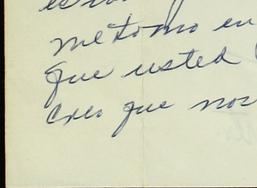 me tomo en
que usted
creo que nos